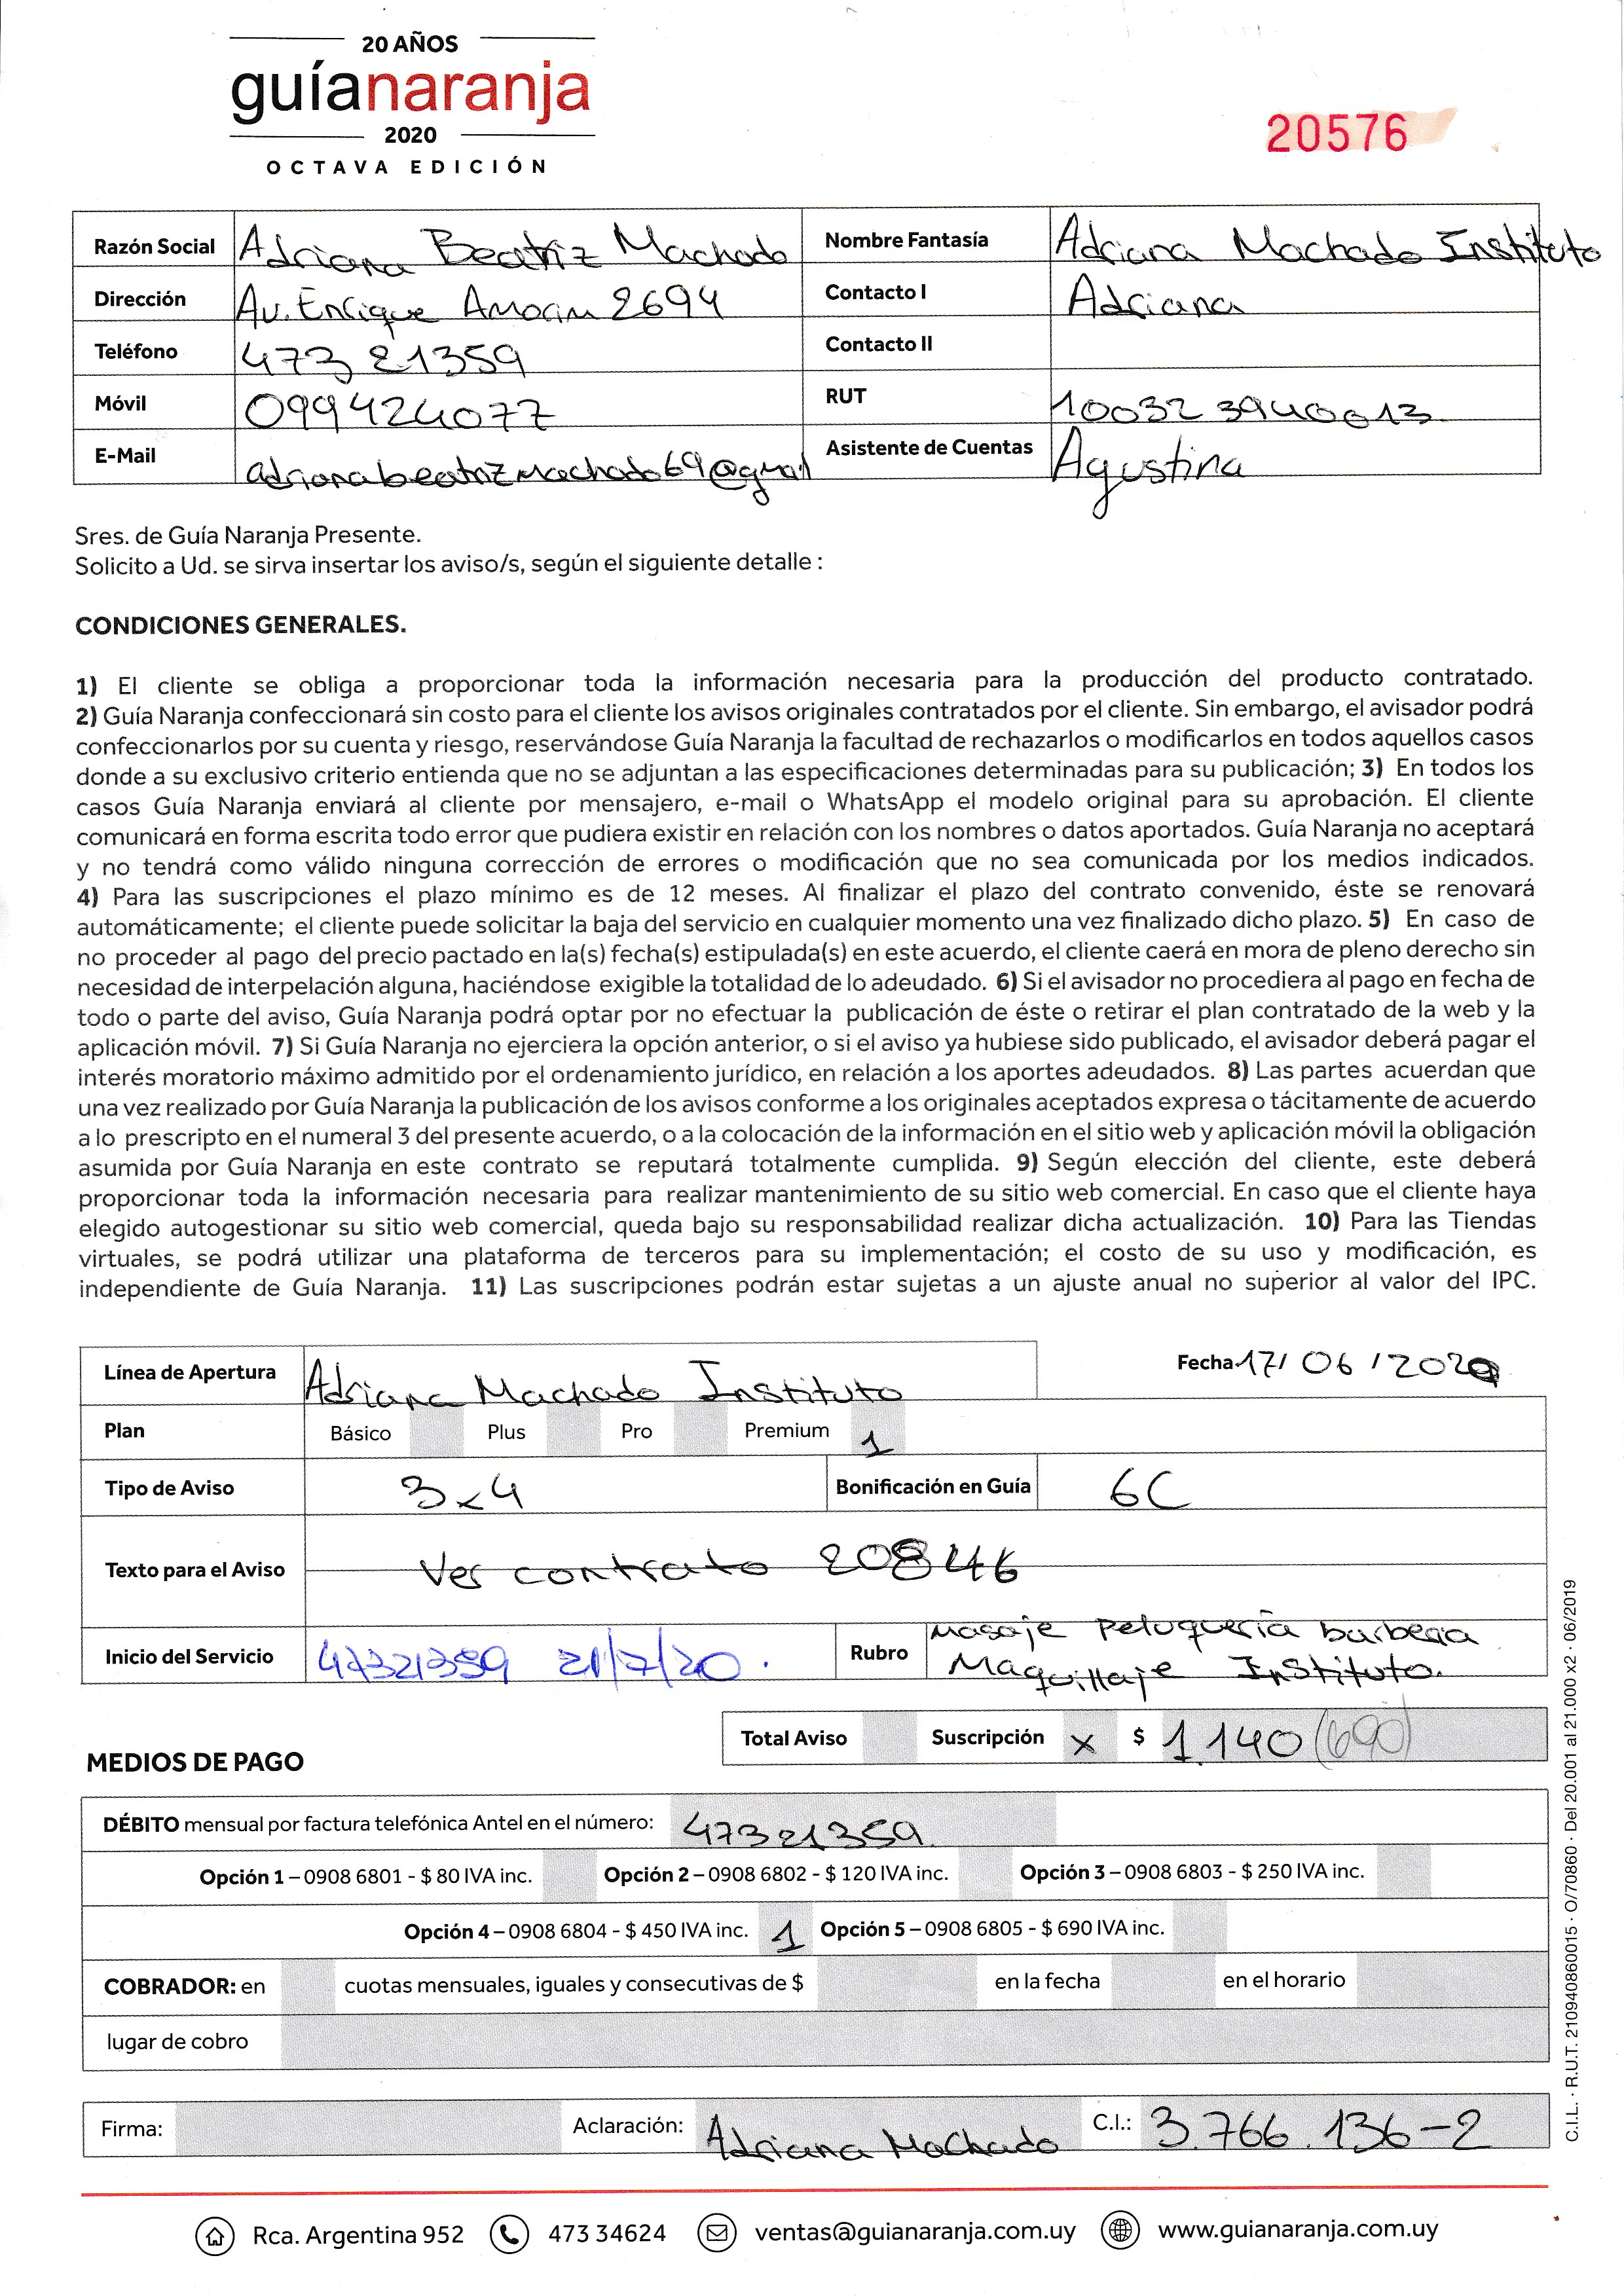 20 AÑOS
guíanaranja
2020
OCTAVA EDICIÓN
20576
Razón Social Adriana Beatriz Machado Nombre Fantasía Adriana Machado Instituto
Dirección Av. Enrique Amorim 2694 Contacto I Adriana
Teléfono 473 21359 Contacto II
Móvil 099424077 RUT 100323940013
E-Mail adrianabeatrizmachado69@gmail Asistente de Cuentas Agustina
Sres. de Guía Naranja Presente.
Solicito a Ud. se sirva insertar los aviso/s, según el siguiente detalle :
CONDICIONES GENERALES.
1) El cliente se obliga a proporcionar toda la información necesaria para la producción del producto contratado.
2) Guía Naranja confeccionará sin costo para el cliente los avisos originales contratados por el cliente. Sin embargo, el avisador podrá
confeccionarlos por su cuenta y riesgo, reservándose Guía Naranja la facultad de rechazarlos o modificarlos en todos aquellos casos
donde a su exclusivo criterio entienda que no se adjuntan a las especificaciones determinadas para su publicación; 3) En todos los
casos Guía Naranja enviará al cliente por mensajero, e-mail o WhatsApp el modelo original para su aprobación. El cliente
comunicará en forma escrita todo error que pudiera existir en relación con los nombres o datos aportados. Guía Naranja no aceptará
y no tendrá como válido ninguna corrección de errores o modificación que no sea comunicada por los medios indicados.
4) Para las suscripciones el plazo mínimo es de 12 meses. Al finalizar el plazo del contrato convenido, éste se renovará
automáticamente; el cliente puede solicitar la baja del servicio en cualquier momento una vez finalizado dicho plazo. 5) En caso de
no proceder al pago del precio pactado en la(s) fecha(s) estipulada(s) en este acuerdo, el cliente caerá en mora de pleno derecho sin
necesidad de interpelación alguna, haciéndose exigible la totalidad de lo adeudado. 6) Si el avisador no procediera al pago en fecha de
todo o parte del aviso, Guía Naranja podrá optar por no efectuar la publicación de éste o retirar el plan contratado de la web y la
aplicación móvil. 7) Si Guía Naranja no ejerciera la opción anterior, o si el aviso ya hubiese sido publicado, el avisador deberá pagar el
interés moratorio máximo admitido por el ordenamiento jurídico, en relación a los aportes adeudados. 8) Las partes acuerdan que
una vez realizado por Guía Naranja la publicación de los avisos conforme a los originales aceptados expresa o tácitamente de acuerdo
a lo prescripto en el numeral 3 del presente acuerdo, o a la colocación de la información en el sitio web y aplicación móvil la obligación
asumida por Guía Naranja en este contrato se reputará totalmente cumplida. 9) Según elección del cliente, este deberá
proporcionar toda la información necesaria para realizar mantenimiento de su sitio web comercial. En caso que el cliente haya
elegido autogestionar su sitio web comercial, queda bajo su responsabilidad realizar dicha actualización. 10) Para las Tiendas
virtuales, se podrá utilizar una plataforma de terceros para su implementación; el costo de su uso y modificación, es
independiente de Guía Naranja. 11) Las suscripciones podrán estar sujetas a un ajuste anual no superior al valor del IPC.
Línea de Apertura Adriana Machado Instituto Fecha 17/ 06 / 2020
Plan Básico Plus Pro Premium 1
Tipo de Aviso 3x4 Bonificación en Guía 6C
Texto para el Aviso Ver contrato 20846
Inicio del Servicio 47321359 21/7/20. Rubro Masaje Peluquería barberia
Maquillaje Instituto.
Total Aviso Suscripción x $ 1.140 (690)
MEDIOS DE PAGO
DÉBITO mensual por factura telefónica Antel en el número: 47321359
Opción 1 – 0908 6801 - $ 80 IVA inc. Opción 2 – 0908 6802 - $ 120 IVA inc. Opción 3 – 0908 6803 - $ 250 IVA inc.
Opción 4 – 0908 6804 - $ 450 IVA inc. 1 Opción 5 – 0908 6805 - $ 690 IVA inc.
COBRADOR: en cuotas mensuales, iguales y consecutivas de $ en la fecha en el horario
lugar de cobro
Firma: Aclaración: Adriana Machado C.I.: 3.766.136-2
Rca. Argentina 952 473 34624 ventas@guianaranja.com.uy www.guianaranja.com.uy
C.I.L. · R.U.T. 210940860015 · O/70860 · Del 20.001 al 21.000 x2 · 06/2019